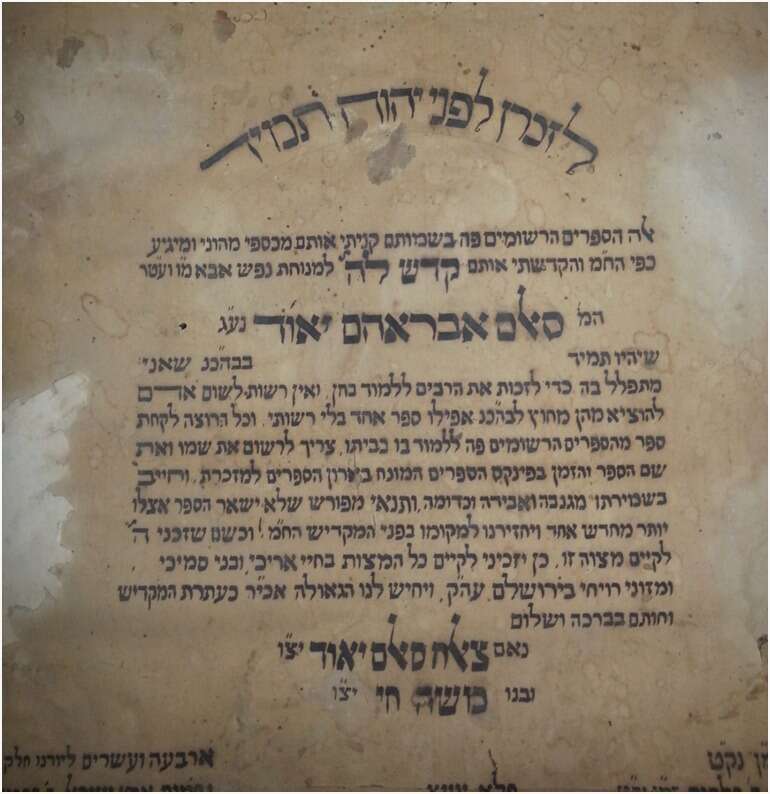 לזכרון לפני יהוה תמיד
אלה הספרים הרשומים פה בשמותם קניתי אותם מכספי מהוני ומיגיע
כפי הח״מ והקדשתי אותם קדש לה׳ למנוחת נפש אבא מ״ו וע״טר
המ׳ סאלם אבראהם יאוד נע״ג
שיהיו תמיד בבהכ״נ שאני
מתפלל בה כדי לזכות את הרבים ללמוד בהן, ואין רשות לשום אדם
להוציא מהן מחוץ לבהכ״נ אפילו ספר אחד בלי רשותי. וכל הרוצה לקחת
ספר מהספרים הרשומים פה ללמוד בו בביתו, צריך לרשום את שמו ואת
שם הספר והזמן בפינקס הספרים המונח בארון הספרים למזכרת, וחייב
בשמירתו מגנבה ואבידה וכדומה, ותנאי מפורש שלא ישאר הספר אצלו
יותר מחדש אחד ויחזירנו למקומו בפני המקדיש הח״מ! וכשם שזכני ה׳
לקיים מצוה זו, כן יזכיני לקיים כל המצות בחיי אריכי, ובני סמיכי,
ומזוני רויחי בירושלם עה״ק, ויחיש לנו הגאולה אכי״ר כעתרת המקדיש
וחותם בברכה ושלום
נאם צאלח סאלם יאוד יצ״ו
ובנו משה חי יצ״ו
נקט ארבעה ועשרים ליורנו חלק